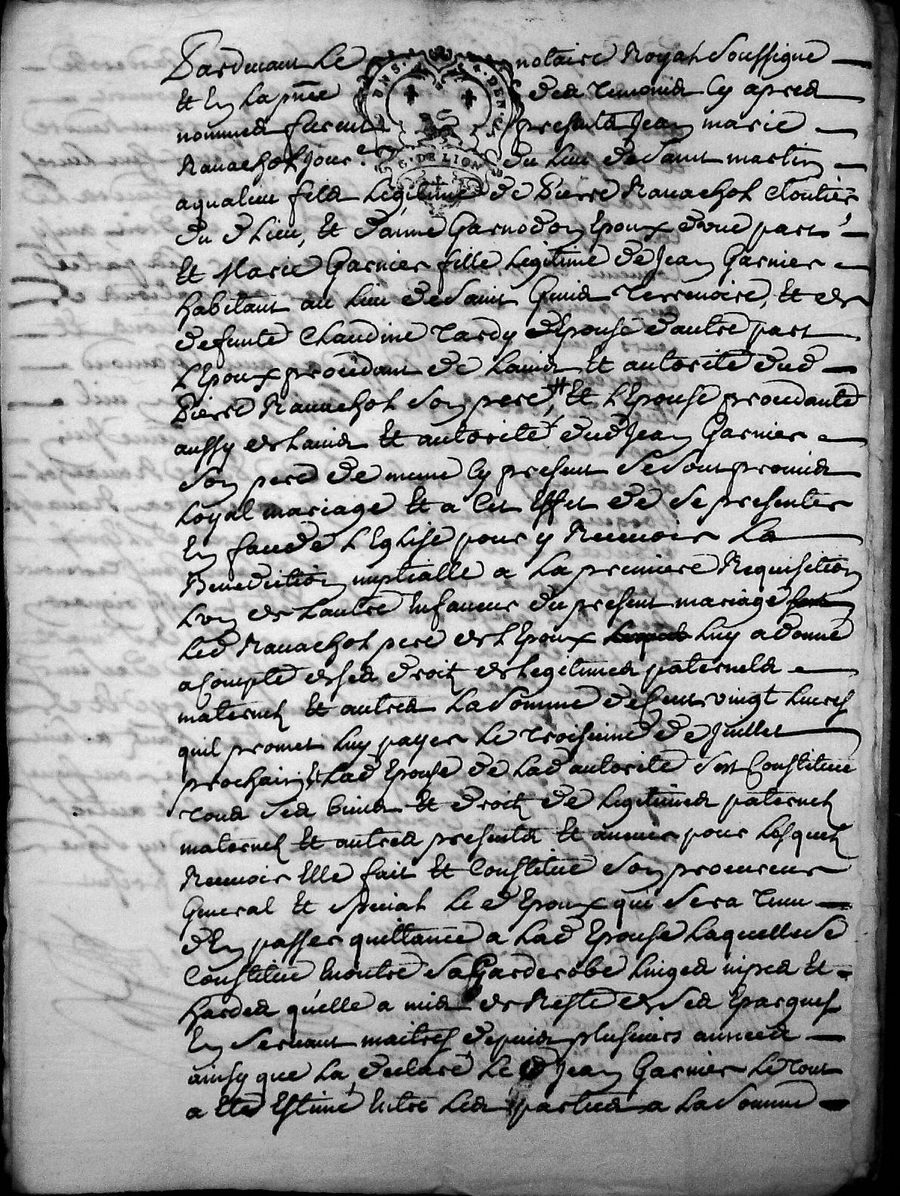 Pardevant Le notaire Royal Soussigné
Et En La pnce des temoins Cy apres
nommes furent presents Jean marie
Ravachol Jour.er du Lieu de Saint martin
aqualieu fils Légitime de Pierre Ravachol Cloutier
du d Lieu, Et d'anne Garnodon Epoux d'vne part
Et Marie Garnier fille Legitime de Jean Garnier
habitant au Lieu de Saint Genis terrenoire, Et de
deffunte Claudine tardy d'Epouse d'autre part
L'Epoux procédant de L'avis Et autorité dud
Pierre Ravachol Son pere, # Et L'Epouse procedante
aussy de L'avis Et autorité dud Jean Garnier
Son pere de meme Cy present Se Sont promis
Loyal mariage Et a Cet Effet de Se presenter
En face de L'Eglise pour y Recevoir La
Benediction nuptialle a La premiere Requisition
L'vn de L'autre En faveur du present mariage
Led Ravachol pere de L'Epoux Luy a donné
a Compte de Ses droits de Legitimes paternels
maternels Et autres La Somme de Cent vingt Livres
quil promet Luy payer Le troisieme de Juillet
prochain & Lad Epouse de Lad autorité S'est Constitué
tous Ses biens Et droits de Legitimes paternels
maternels Et autres presents Et avenir pour Lesquels
Recevoir Elle fait Et Constitue Son procureur
General Et Special Le d Epoux qui Sera tenu
d'En passer quittance a Lad Epouse Laquelle Se
Constitue En outre Sa Garderobe Linges nipes Et
hardes qu'elle a mis de Reste de Ses Epargnes
En Servant maitres depuis plusieurs années
ainsy que La declaré Le d Jean Garnier Le tout
a Eté Estimé Entre Les parties a La Somme